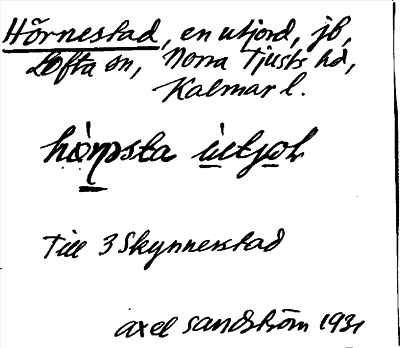 Hörnestad, en utjord, jb,
Lofta sn, Norra Tjusts hd,
Kalmar l.
Till 3 Skynnerstad
axel sandström 1931